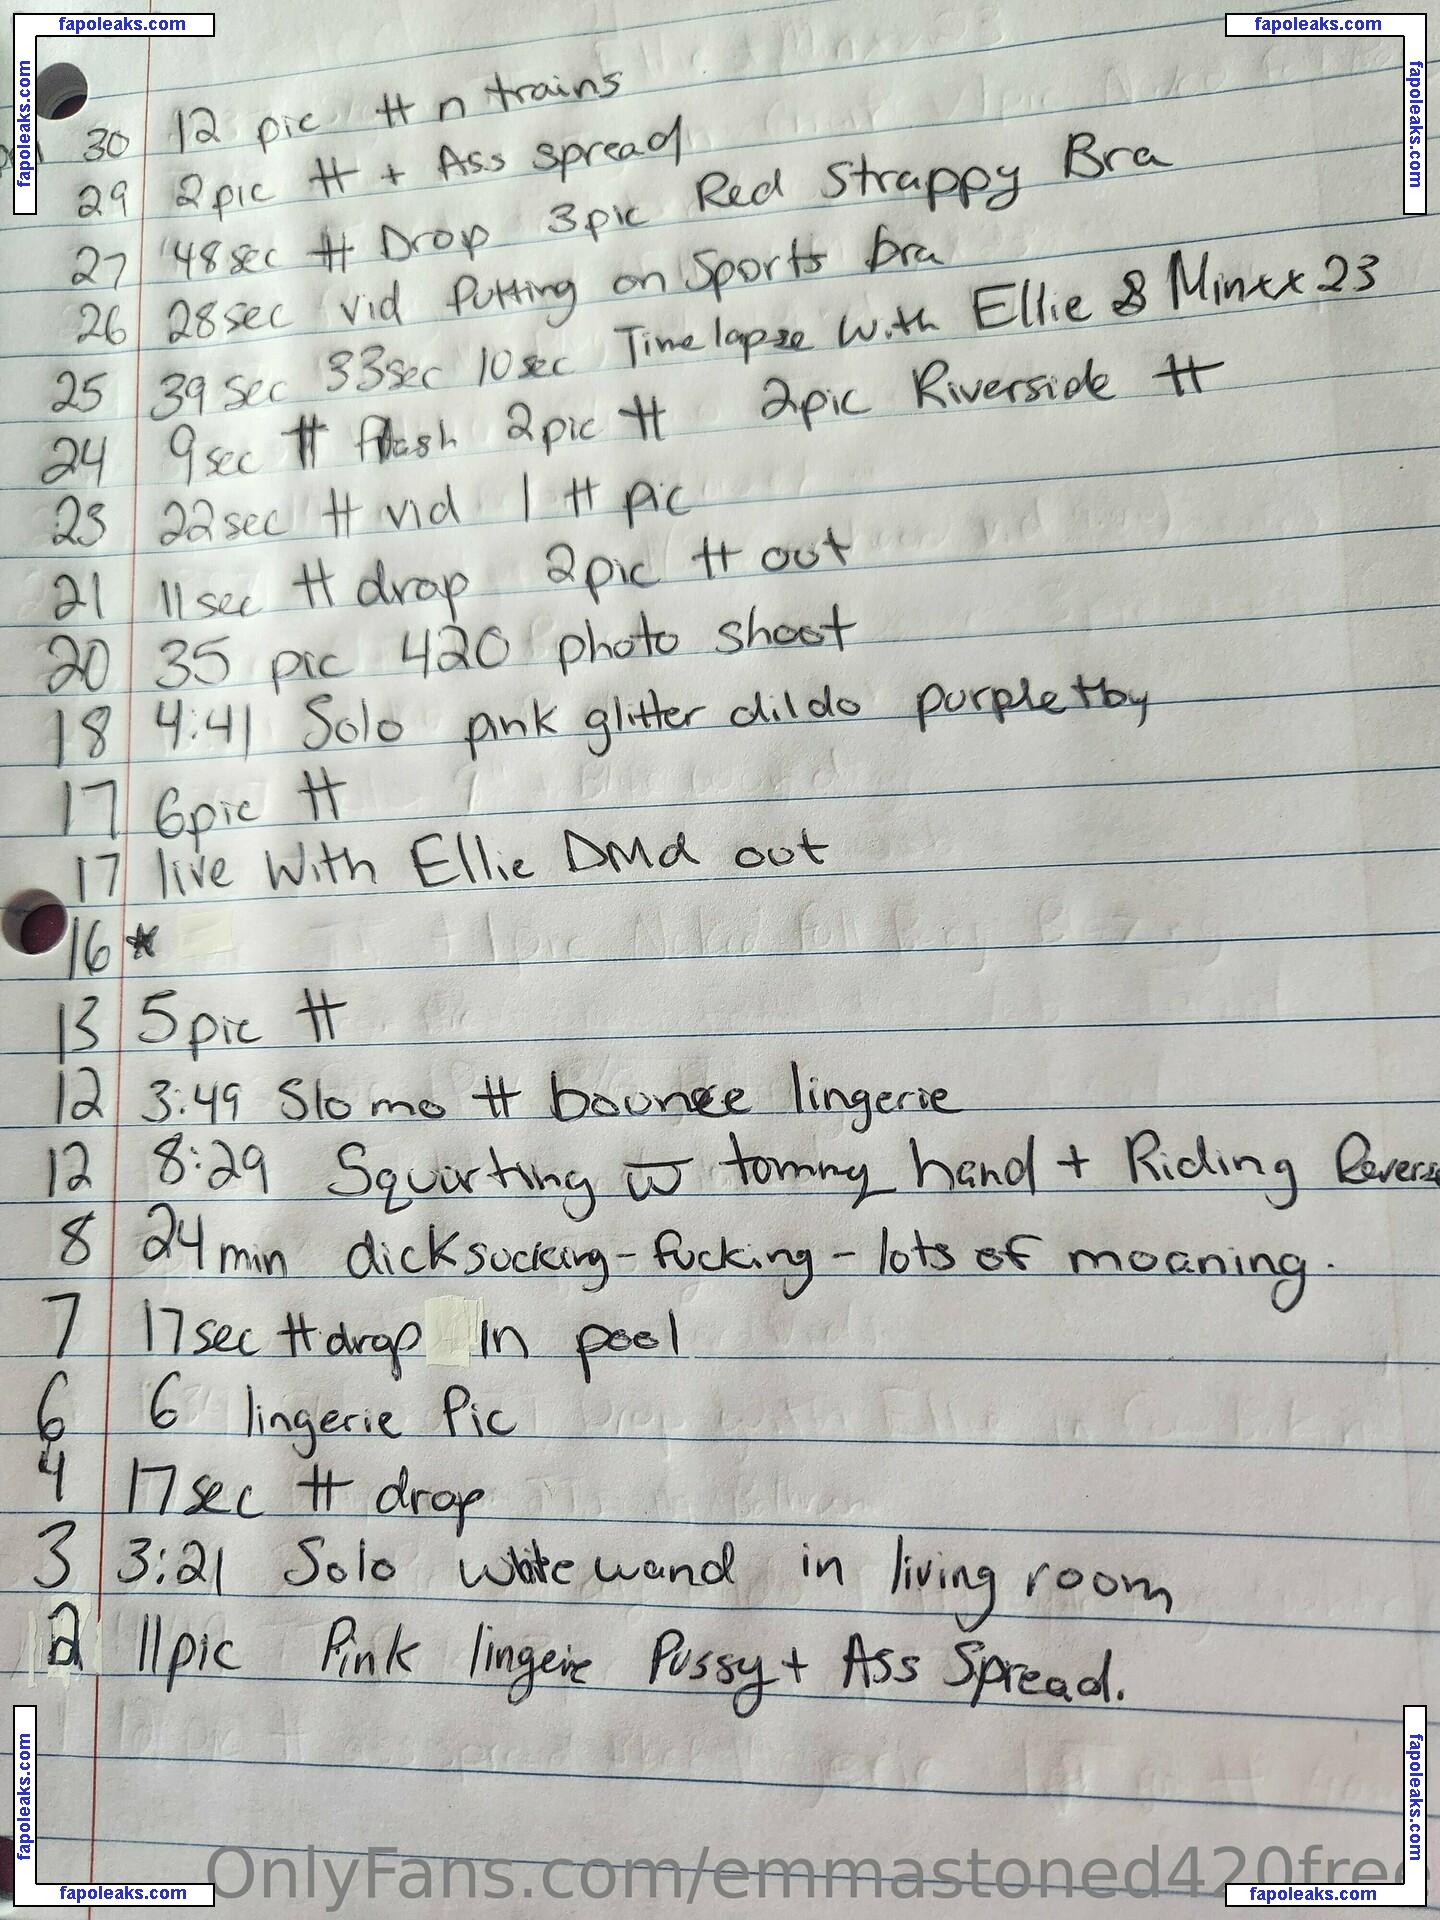 fapoleaks.com fapoleaks.com
fapoleaks.com
fapoleaks.com
30 12 pic tt n trains
29 2pic tt + Ass spread
27 48sec tt Drop 3pic Red Strappy Bra
26 28sec vid Putting on Sports bra
25 39sec 33sec 10sec Timelapse With Ellie & Minxx23
24 9sec tt flash 2pic tt 2pic Riverside tt
23 22sec tt vid 1 tt pic
21 11sec tt drop 2pic tt out
20 35 pic 420 photo shoot
18 4:41 Solo pink glitter dildo purple tby
17 6pic tt
17 live With Ellie DMd out
16 *
13 5pic tt
12 3:49 Slo mo tt bounce lingerie
12 8:29 Squirting w tommy hand + Riding Revers
8 24min dicksucking - fucking - lots of moaning.
7 17sec tt drop In pool
6 6 lingerie Pic
4 17sec tt drop
3 3:21 Solo white wand in living room
2 11pic Pink lingerie Pussy + Ass Spread.
fapoleaks.com
fapoleaks.com
OnlyFans.com/emmastoned420free
fapoleaks.com fapoleaks.com